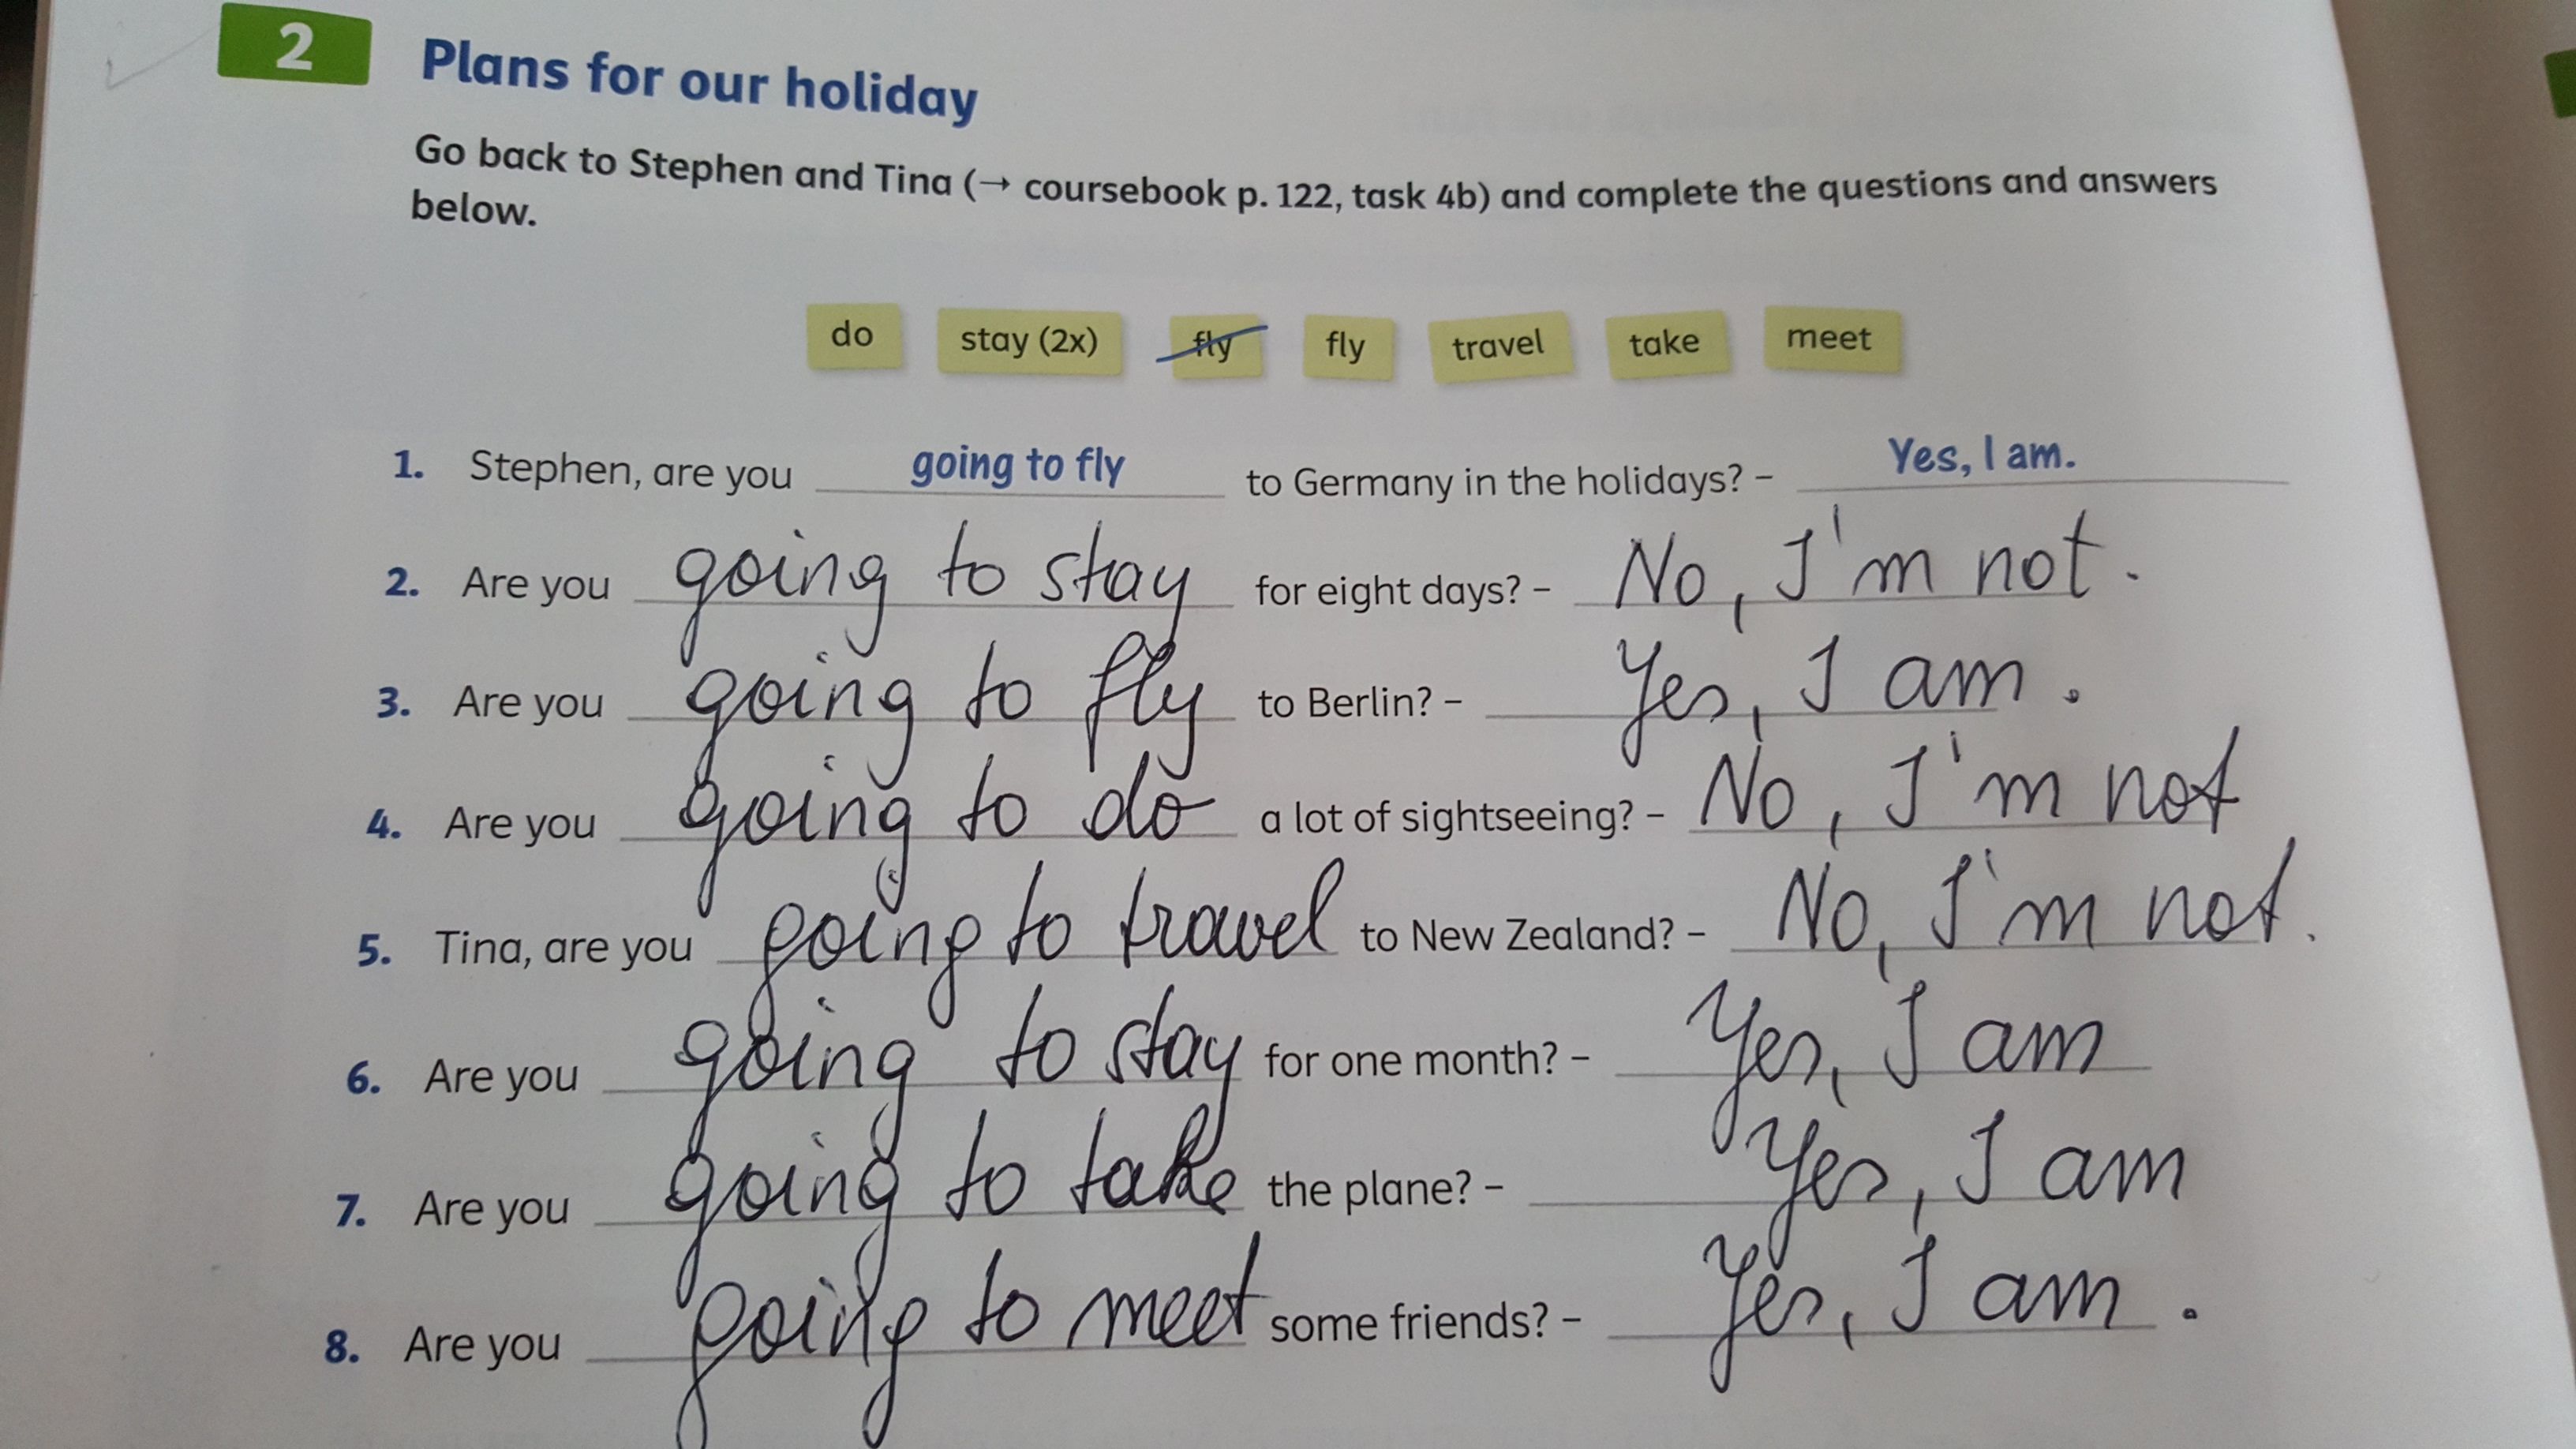 2 Plans for our holiday
Go back to Stephen and Tina (→ coursebook p. 122, task 4b) and complete the questions and answers
below.
do stay (2x) fly fly travel take meet
1. Stephen, are you going to fly to Germany in the holidays? – Yes, I am.
2. Are you going to stay for eight days? – No, I'm not.
3. Are you going to fly to Berlin? – Yes, I am.
4. Are you going to do a lot of sightseeing? – No, I'm not
5. Tina, are you going to travel to New Zealand? – No, I'm not.
6. Are you going to stay for one month? – Yes, I am
7. Are you going to take the plane? – Yes, I am
8. Are you going to meet some friends? – Yes, I am.